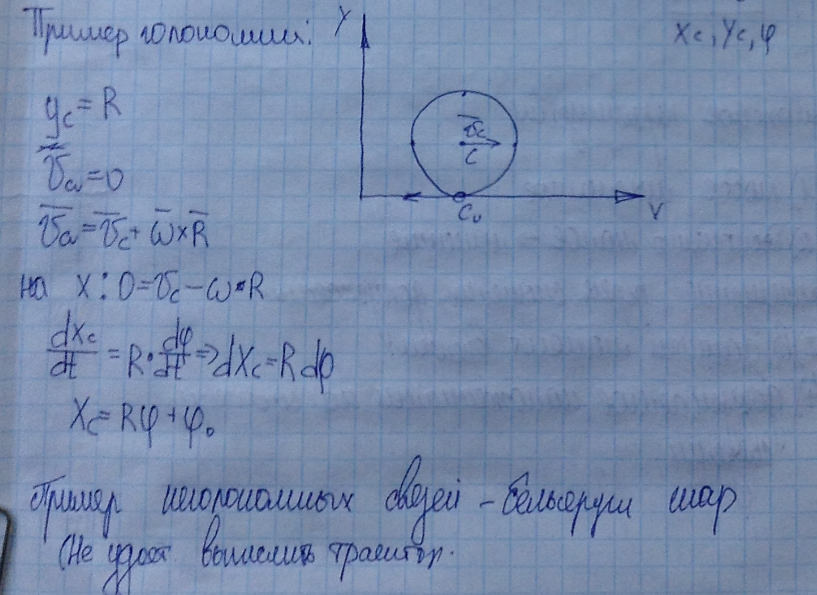 Пример голономии: Y
Xc, Yc, φ
yc = R
v̅c₀ = 0
v̅c₀ = v̅c + ω̅ × R̅
на x: 0 = vc − ω • R
dXc/dt = R • dφ/dt => dXc = R dφ
Xc = Rφ + φ₀
v̅c
C
C₀
Пример неголономных связей – бильярдн шар
(Не удаст вычислить траектор.